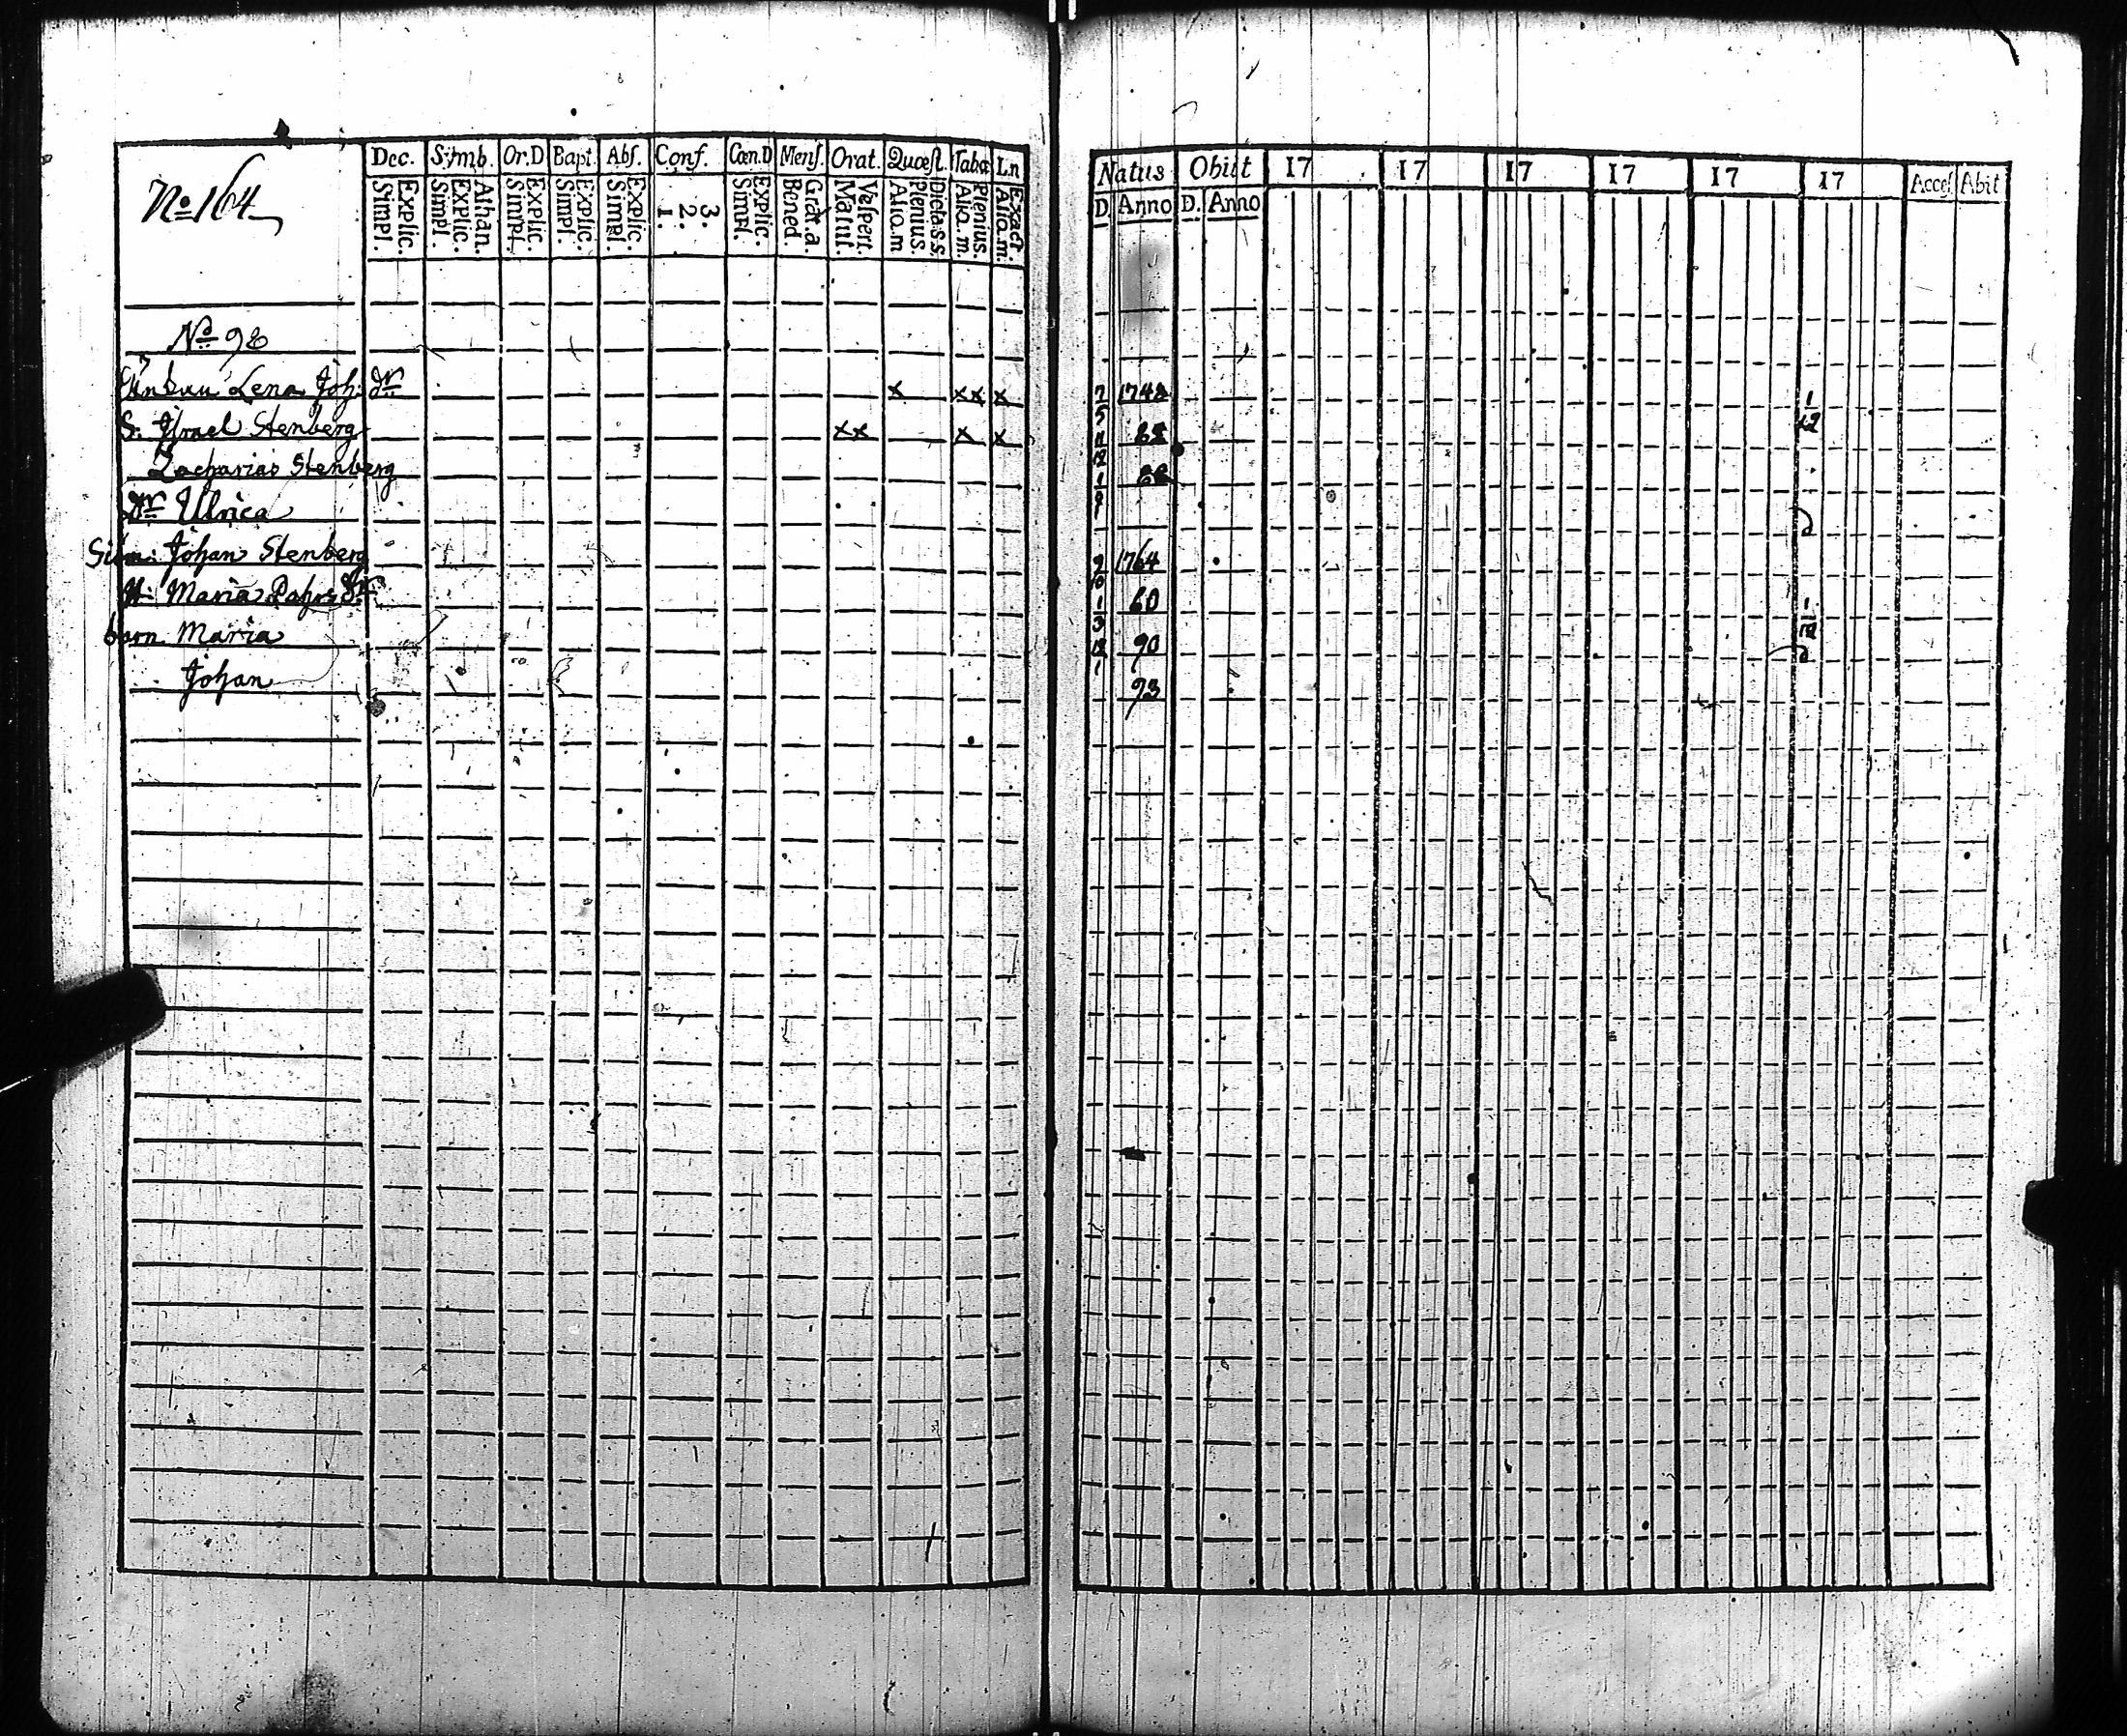 No 164
Dec. Simb. Or.D Bapt. Abs. Conf. Cœn.D Mens. Orat. Quœst. Tabœ Ln
Explic. Simpl. Athan. Explic. Simpl. Explic. Simpl. Explic. Simpl. Explic. Simpl. 3. 2. 1. Explic. Simpl. Grat. a. Bened. Vespert. Matut. Dicta s.s. Plenius. Aliq. m Plenius. Aliq. m. Exact. Aliq. m.
No 98
Enkan Lena Joh: dr x xx x
S. Israel Stenberg xx x x
Zacharias Stenberg
dr Ulrica
Johan Stenberg
H: Maria
barn Maria
Johan
Natus Obiit 17 17 17 17 17 17 Acces. Abit
D. Anno D. Anno
7
5
11
12
1
9
1764
9
10
1
3
60
12
1
90
93
1
12